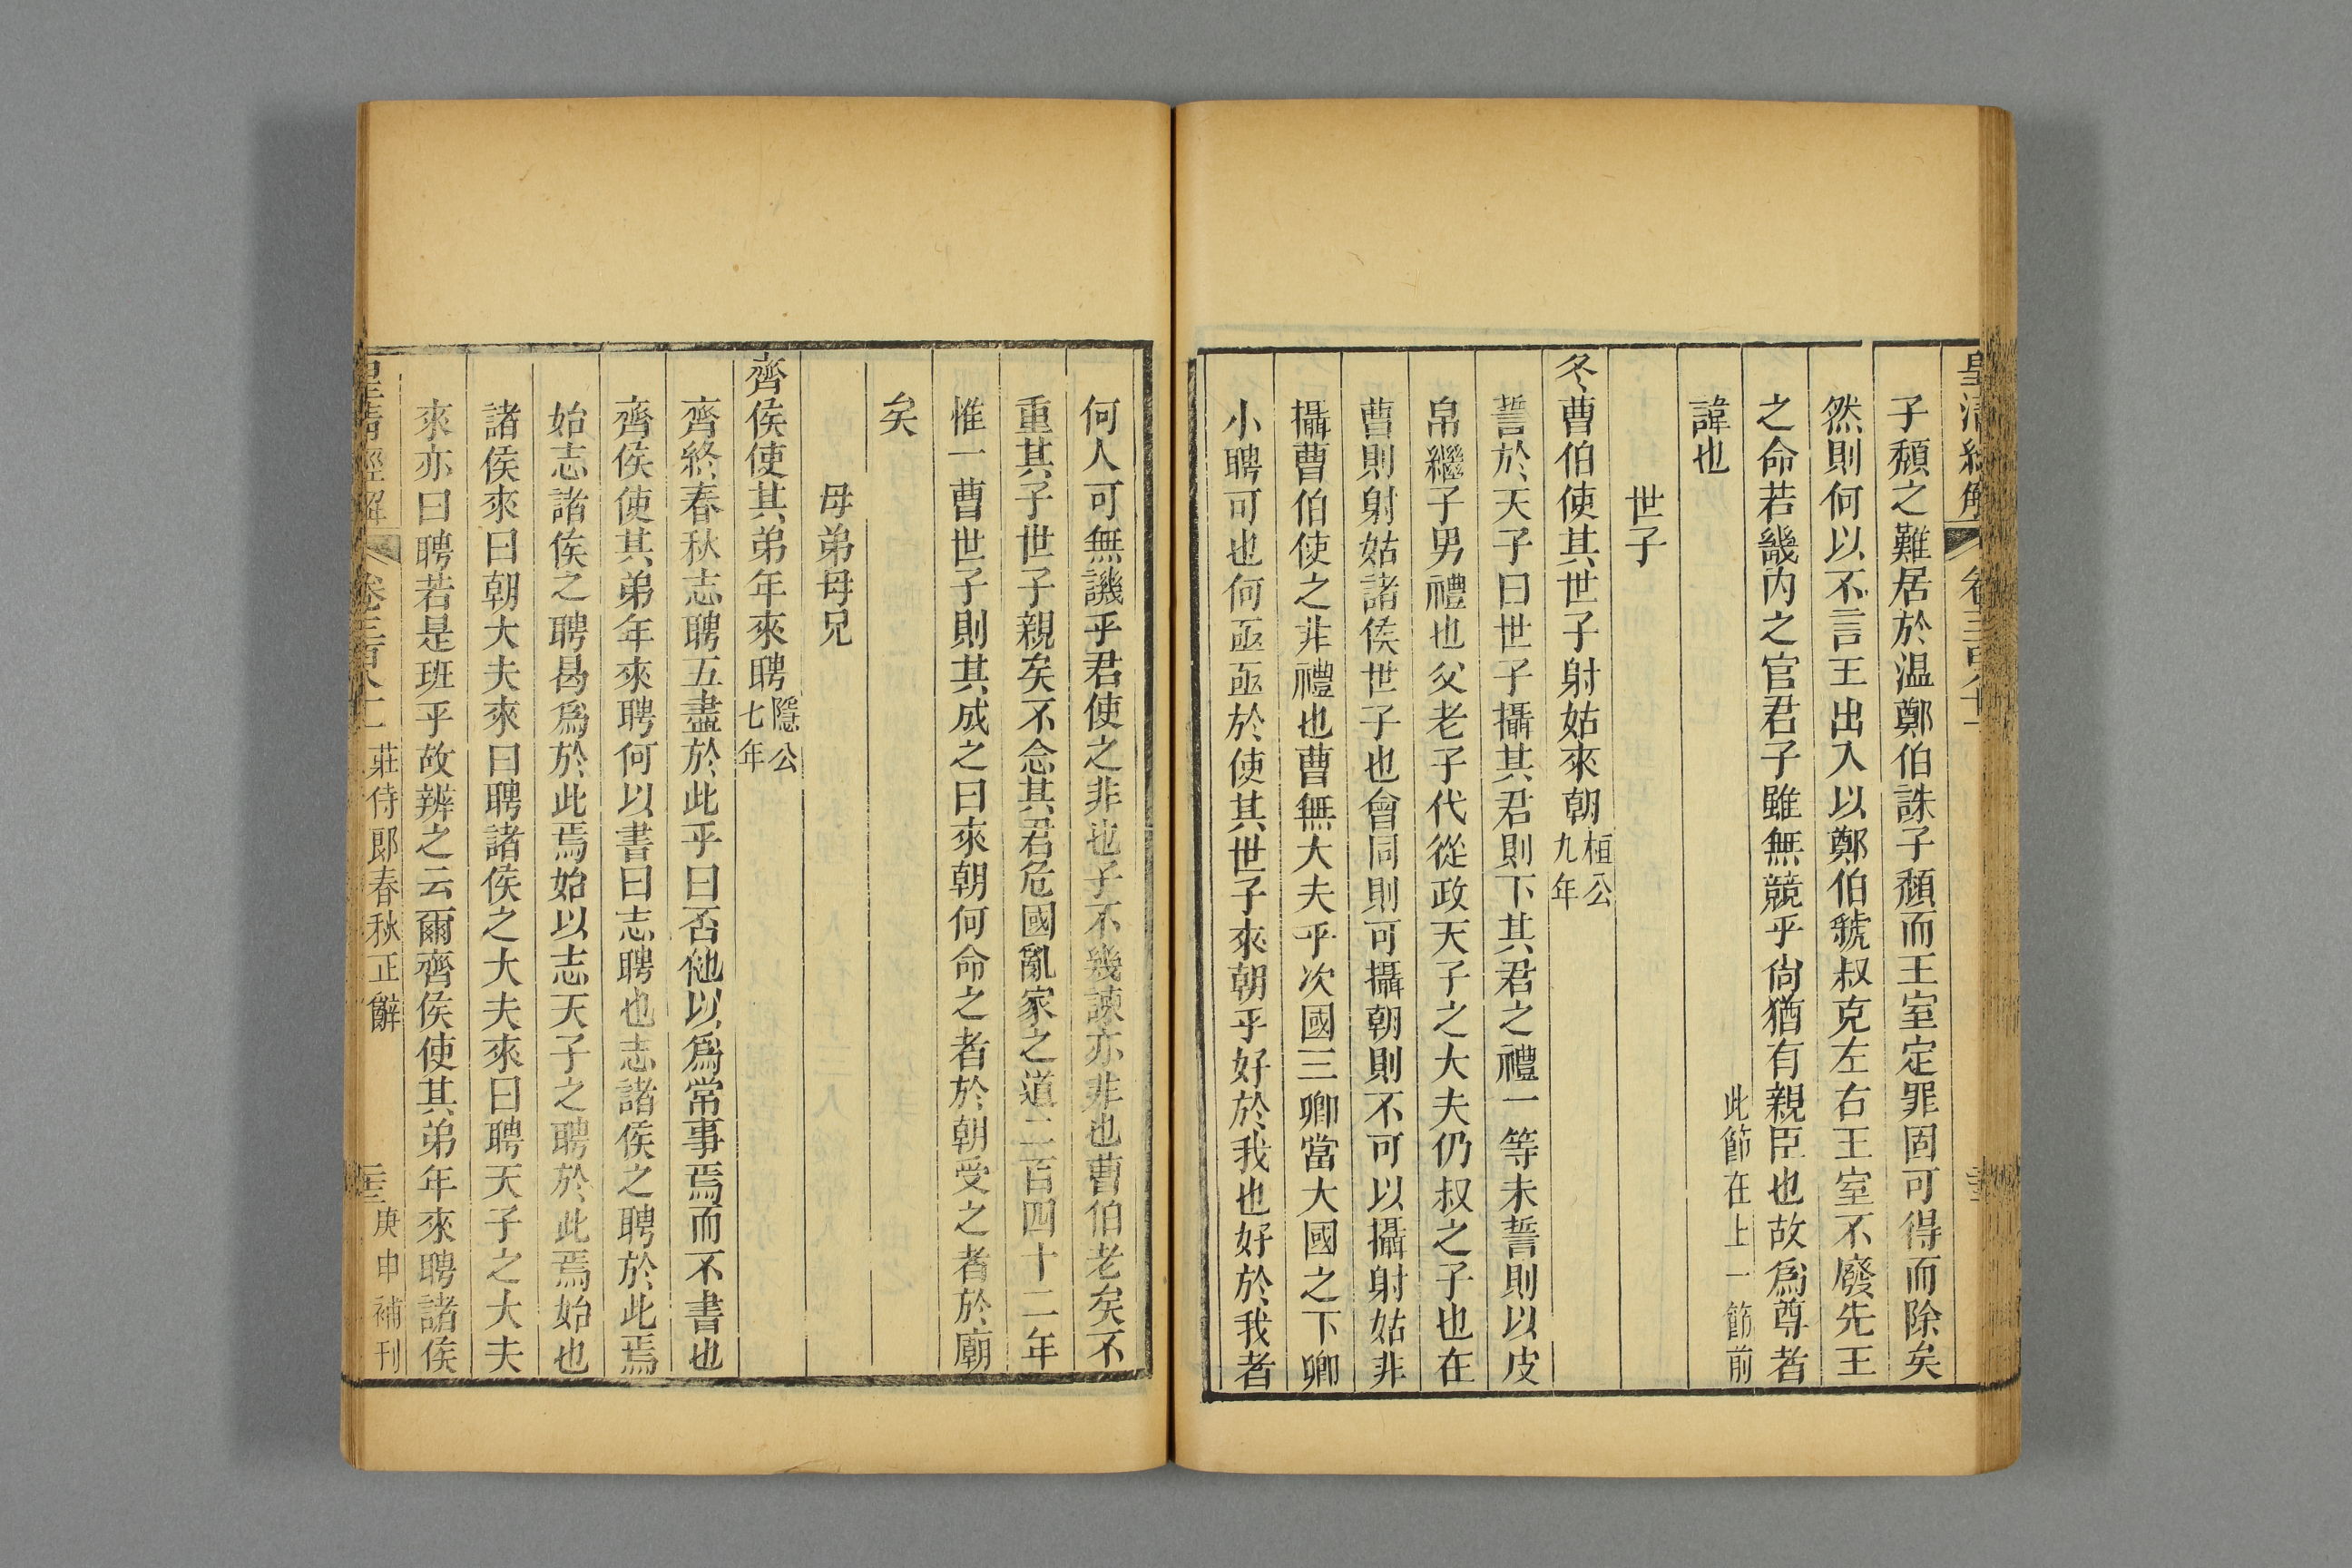 皇清經解
子頽之難居於温鄭伯誅子頽而王室定罪固可得而除矣
然則何以不言王出入以鄭伯虢叔克左右王室不廢先王
之命若畿内之官君子雖無競乎尙猶有親臣也故爲尊者
諱也
此節在上一節前
世子
冬曹伯使其世子射姑來朝桓公九年
誓於天子曰世子攝其君則下其君之禮一等未誓則以皮
帛繼子男禮也父老子代從政天子之大夫仍叔之子也在
曹則射姑諸侯世子也會同則可攝朝則不可以攝射姑非
攝曹伯使之非禮也曹無大夫乎次國三卿當大國之下卿
小聘可也何亟亟於使其世子來朝乎好於我也好於我者
何人可無譏乎君使之非也子不幾諫亦非也曹伯老矣不
重其子世子親矣不念其君危國亂家之道二百四十二年
惟一曹世子則其成之曰來朝何命之者於朝受之者於廟
矣
母弟母兄
齊侯使其弟年來聘隱公七年
齊終春秋志聘五盡於此乎曰否他以爲常事焉而不書也
齊侯使其弟年來聘何以書曰志聘也志諸侯之聘於此焉
始志諸侯之聘曷爲於此焉始以志天子之聘於此焉始也
諸侯來曰朝大夫來曰聘諸侯之大夫來曰聘天子之大夫
來亦曰聘若是班乎故辨之云爾齊侯使其弟年來聘諸侯
皇清經解
莊侍郎春秋正辭
庚申補刊